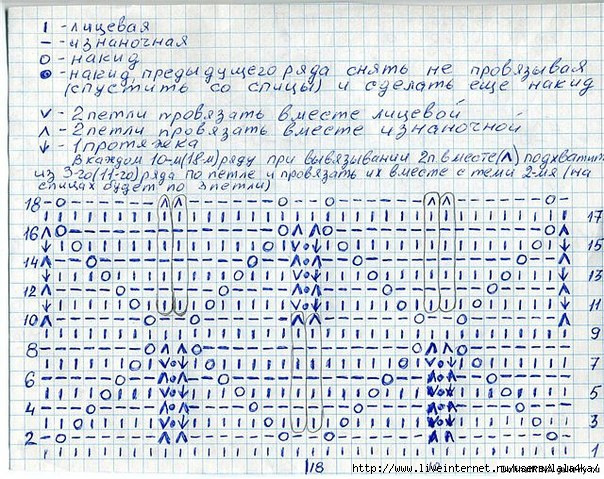 ı - лицевая
— - изнаночная
о - накид
• - накид предыдущего ряда снять не провязывая
(спустить со спицы) и сделать еще накид
v - 2 петли провязать вместе лицевой
ʌ - 2 петли провязать вместе изнаночной
↓ - 1 протяжка
В каждом 10-м (18м) ряду при вывязывании 2п вместе (ʌ) подхватить
из 3-го (11-го) ряда по петле и провязать их вместе с теми 2-мя (на
спицах будет по 3 петли)
18
17
16
15
14
13
12
11
10
9
8
7
6
5
4
3
2
1
18
http://www.liveinternet.ru/users/lala4ka/